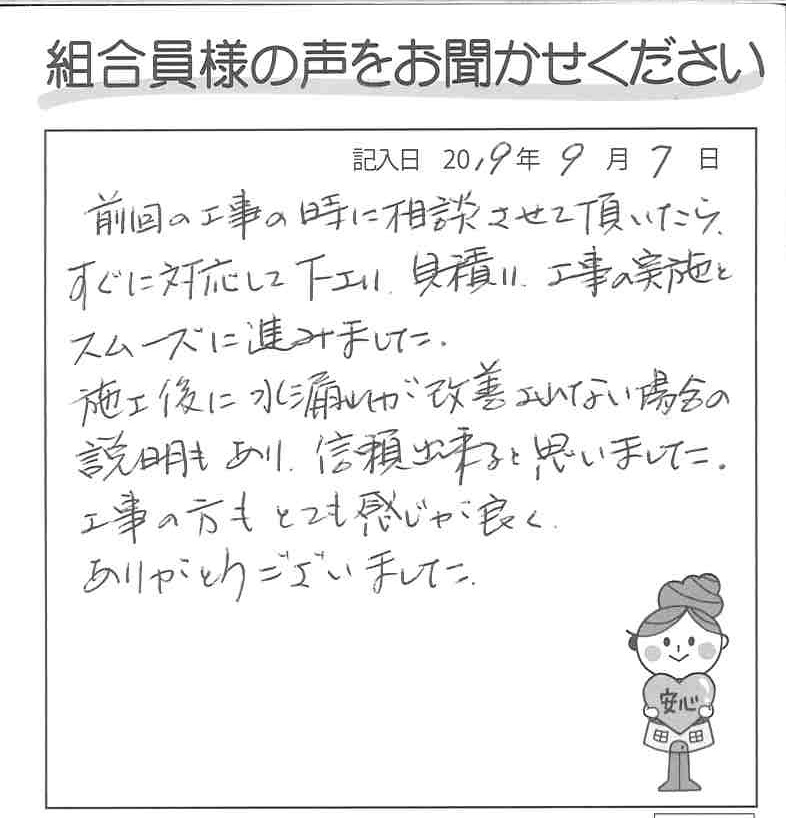 組合員様の声をお聞かせください
記入日 2019年 9月 7日
前回の工事の時に相談させて頂いたら、
すぐに対応して下さり、見積り、工事の実施と
スムーズに進みました。
施工後に水漏れが改善されない場合の
説明もあり、信頼出来ると思いました。
工事の方もとても感じが良く、
ありがとうございました。
安心